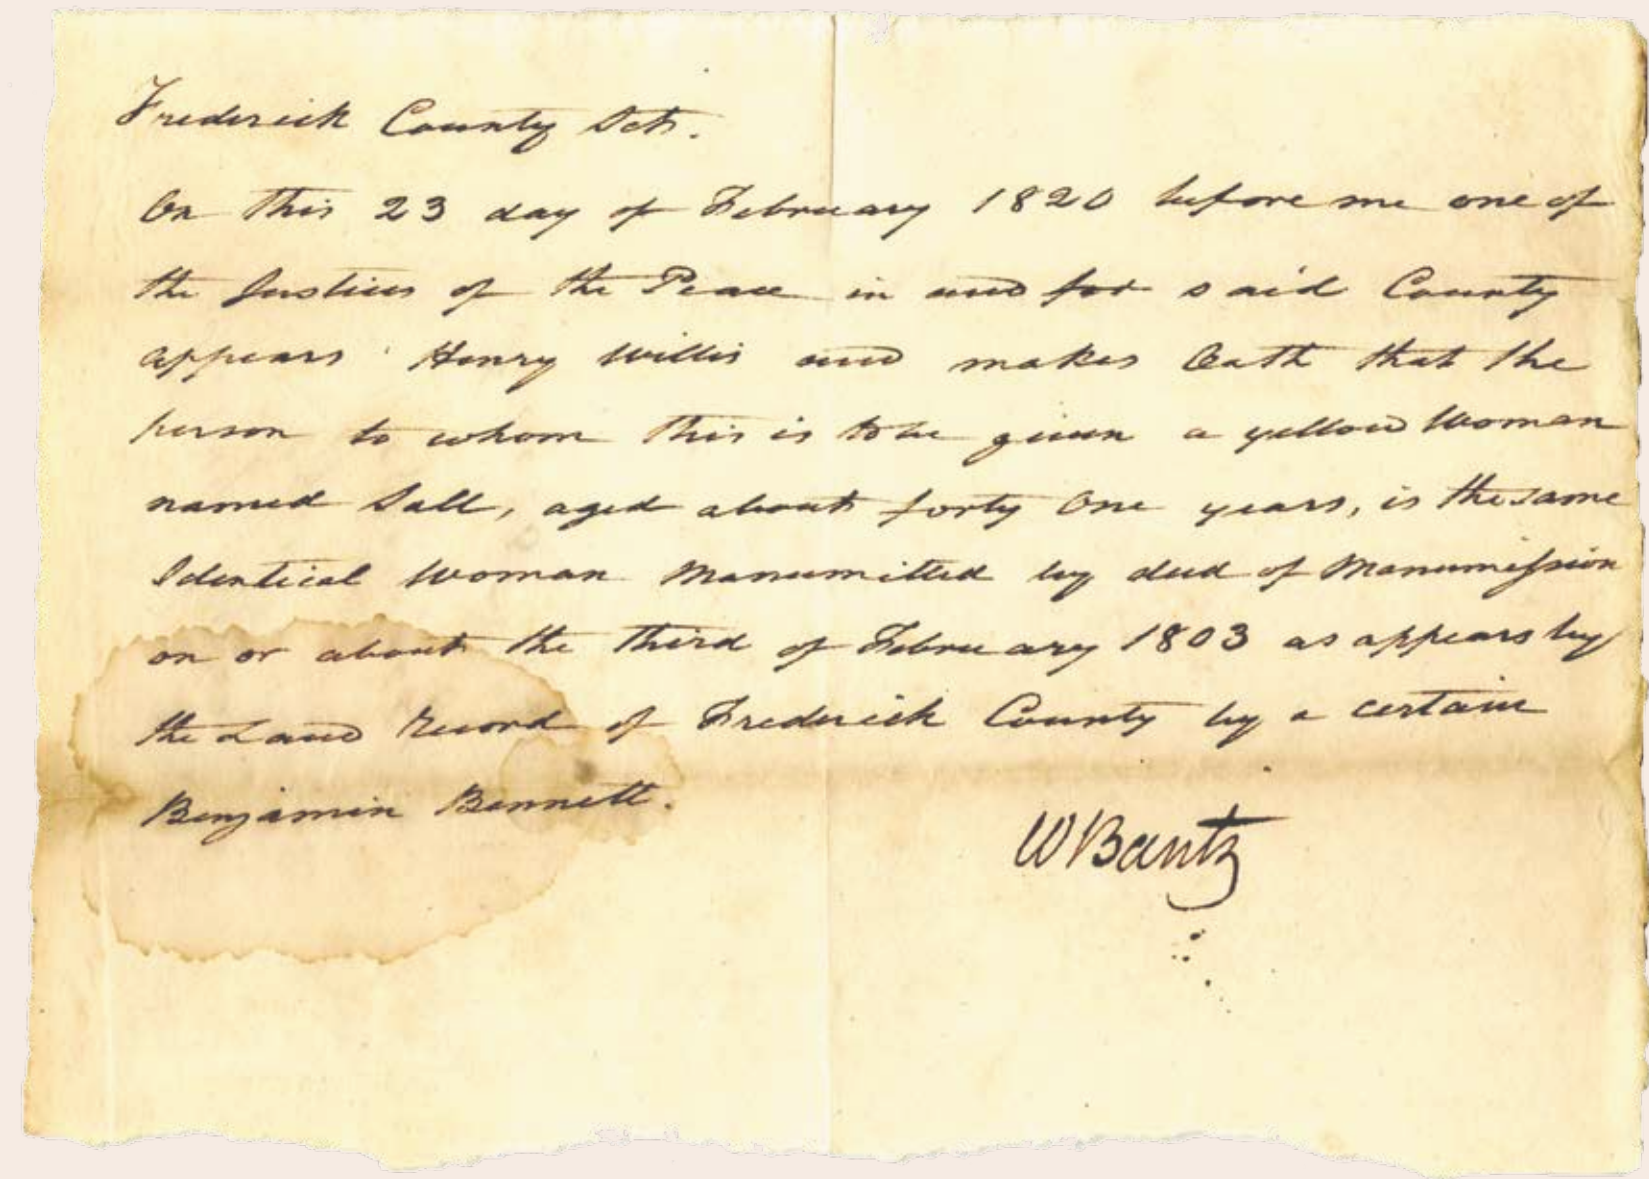 Frederick County Sct.
On this 23 day of February 1820 before me one of
the Justices of the Peace in and for said County
appears Henry Willis and makes Oath that the
person to whom this is to be given a yellow Woman
named Sall, aged about forty One years, is the same
Identical Woman Manumitted by deed of Manumission
on or about the third of February 1803 as appears by
the Land Record of Frederick County by a certain
Benjamin Bennett.
W Bantz